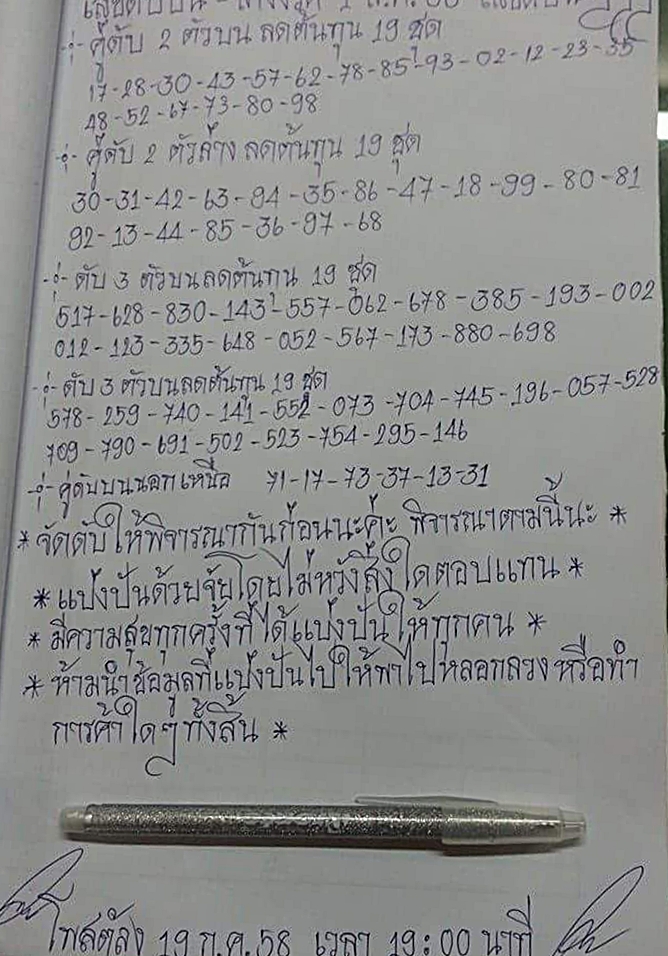 -:- คู่ดับ 2 ตัวบน ลดต้นทุน 19 ชุด
17-28-30-43-57-62-78-85-93-02-12-23-35
48-52-67-73-80-98
-:- คู่ดับ 2 ตัวล่าง ลดต้นทุน 19 ชุด
30-31-42-63-94-35-86-47-18-99-80-81
92-13-44-85-36-97-68
-:- ดับ 3 ตัวบนลดต้นทุน 19 ชุด
517-628-830-143-557-062-678-385-193-002
012-123-335-648-052-567-173-880-698
-:- ดับ 3 ตัวบนลดต้นทุน 19 ชุด
578-259-740-141-552-073-704-745-196-057-528
709-790-691-502-523-754-295-146
-:- คู่ดับบนนอกเหนือ 71-17-73-37-13-31
* จัดดับให้พิจารณากันก่อนนะค่ะ พิจารณาตามนี้นะ *
* แบ่งปันด้วยจุ้ยโดยไม่หวังสิ่งใดตอบแทน *
* มีความสุขทุกครั้งที่ได้แบ่งปันให้ทุกคน *
* ห้ามนำข้อมูลที่แบ่งปันไปให้พาไปหลอกลวงหรือทำ
การค้าใดๆทั้งสิ้น *
โพสต์ลง 19 ก.ค.58 เวลา 19:00 นาที